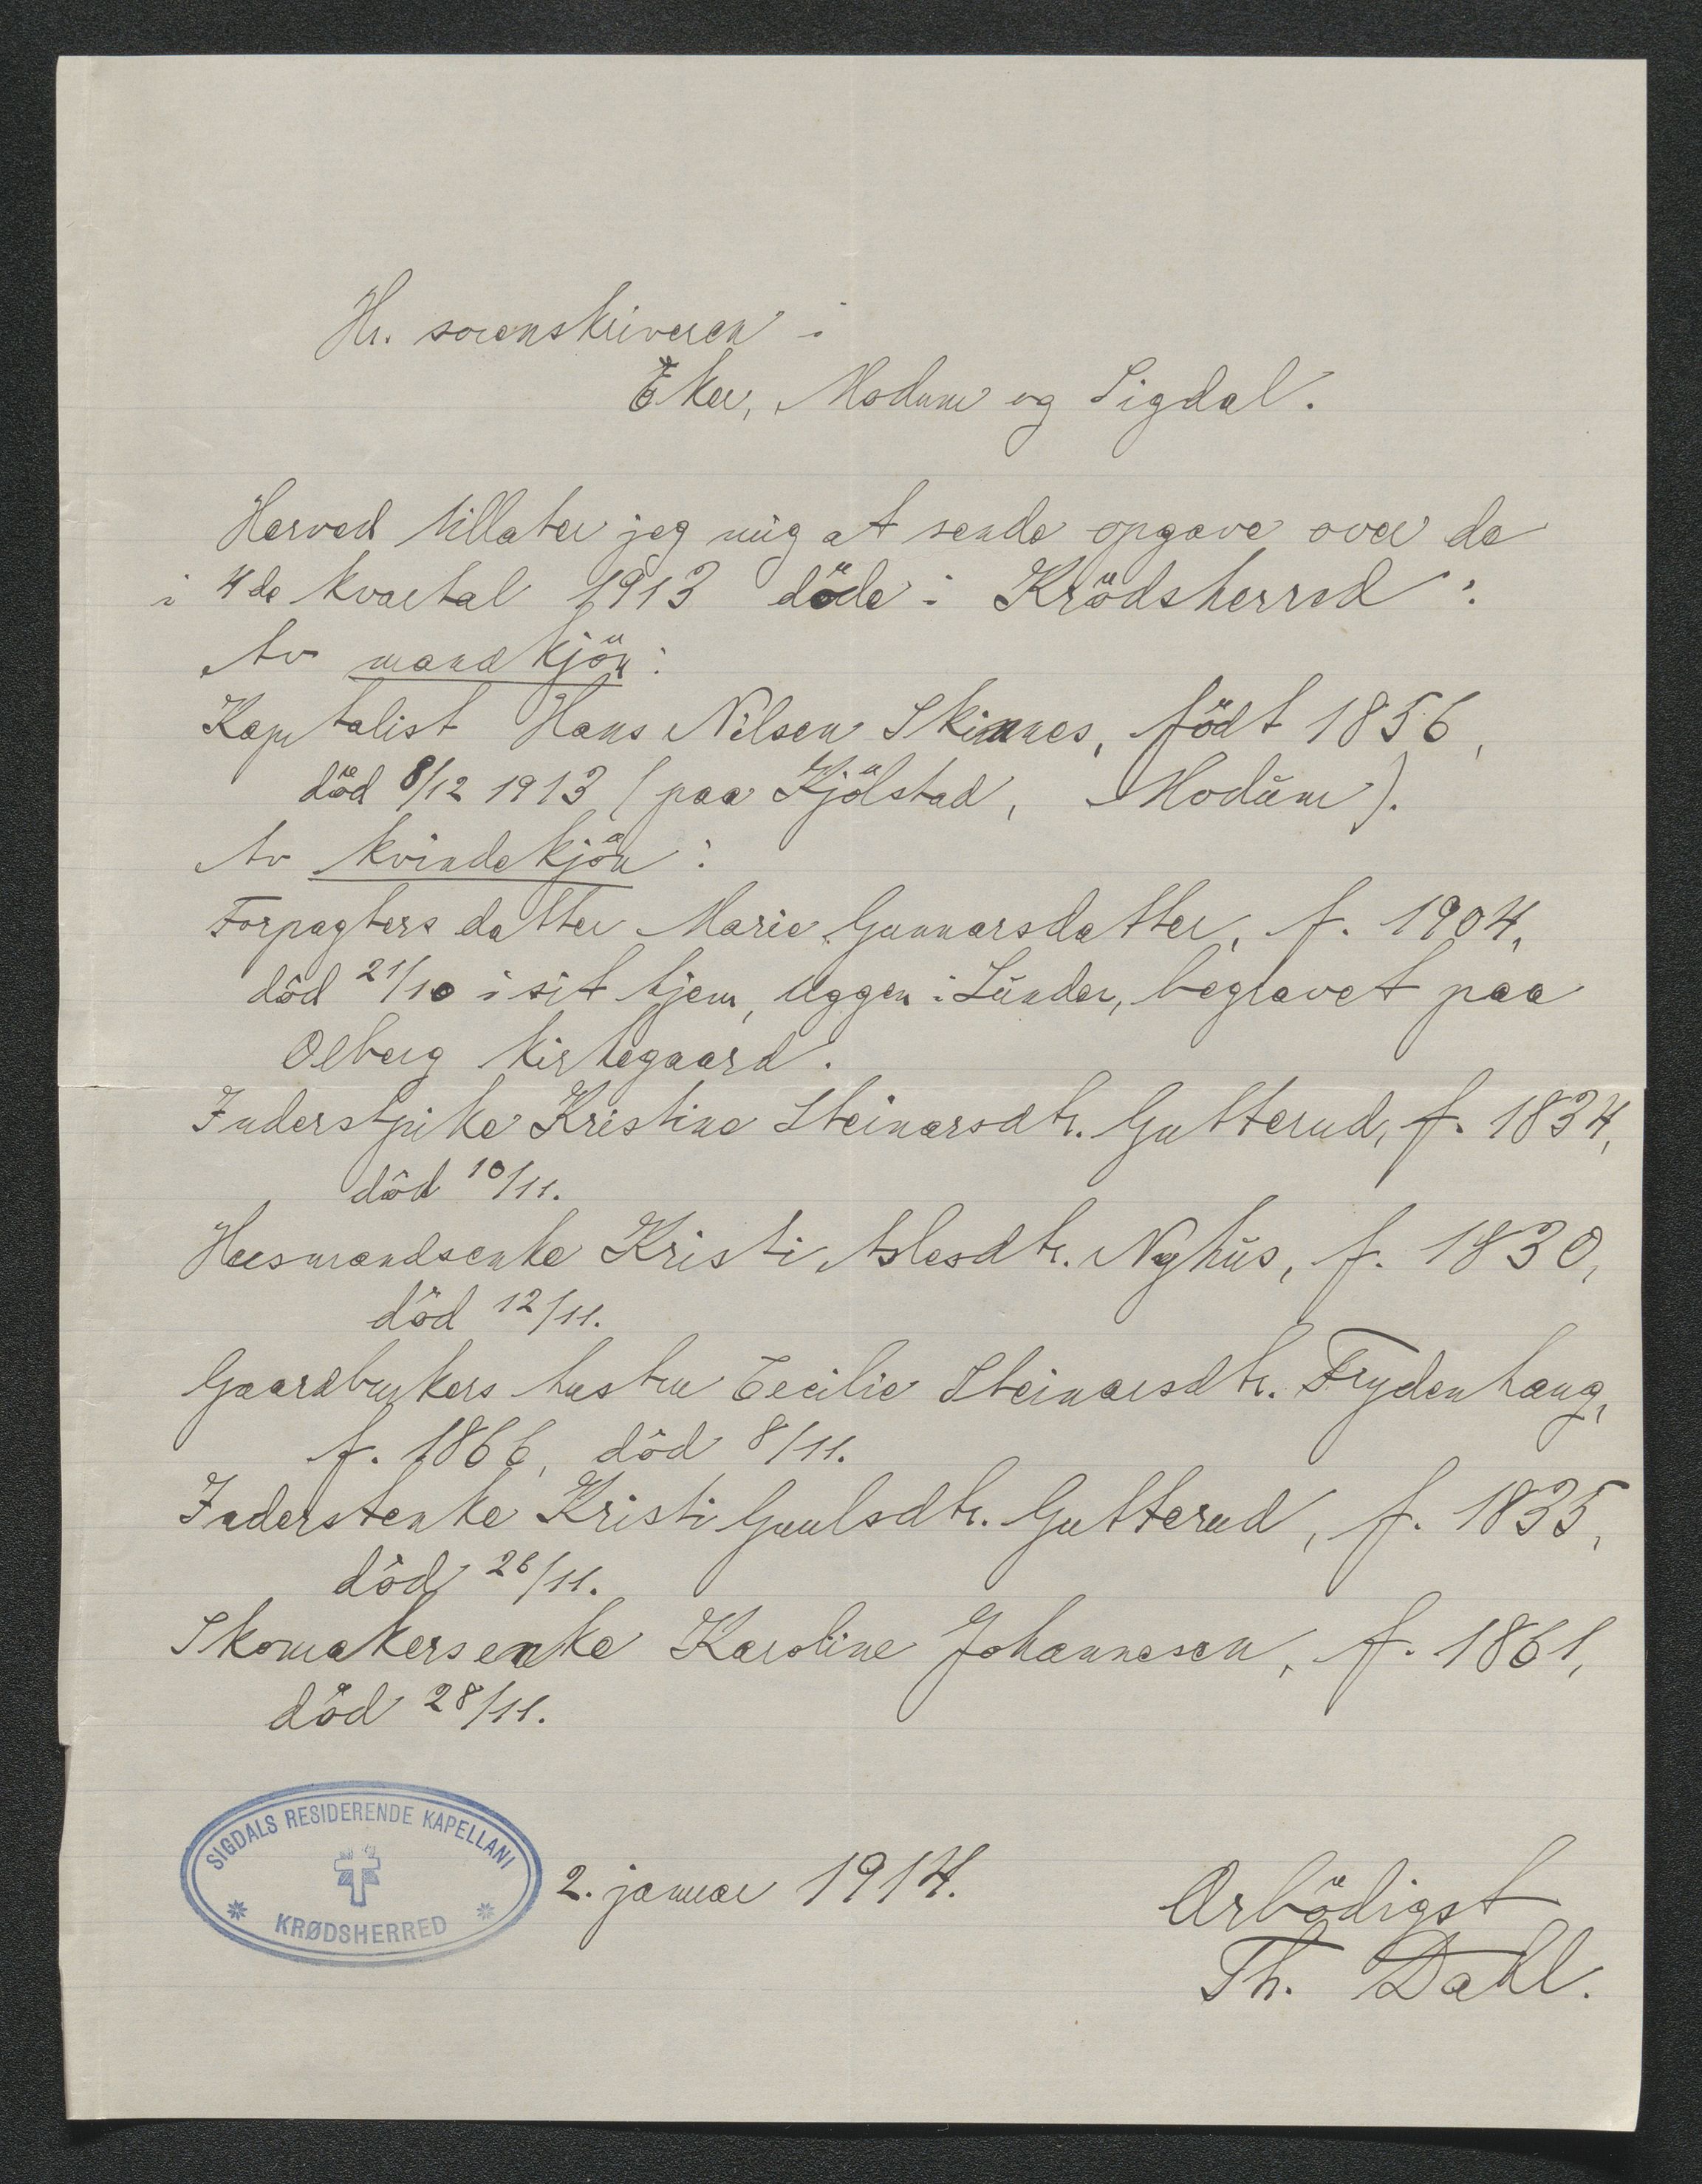 Hr. sorenskriveren i
Eker, Modum og Sigdal.
Herved tillater jeg mig at sende opgave over de
i 4de kvartal 1913 döde i Krödsherred:
Av mandkjön:
Kapitalist Hans Nilsen Skinnes, född 1856,
död 8/12 1913 (paa Kjölstad, Modum).
Av kvindekjön:
Forpagters datter Marie Gunnarsdatter, f. 1904,
död 21/10 i sit hjem, Uggen i Lunder, begravet paa
Olberg kirkegaard.
Inderstpike Kristine Steinarsdtr. Gutterud, f. 1834,
död 10/11.
Husmandsenke Kristi Aslesdtr. Nyhus, f. 1830,
död 12/11.
Gaardbrukers hustru Cecilie Steinarsdtr. Frydenhaug,
f. 1866, död 8/11.
Inderstenke Kristi Guulsdtr. Gutterud, f. 1835,
död 26/11.
Skomakersenke Karoline Johannesen, f. 1861,
död 28/11.
SIGDALS RESIDERENDE KAPELLANI
KRØDSHERRED
2. januar 1914.
Ærbödigst
Th. Dahl.